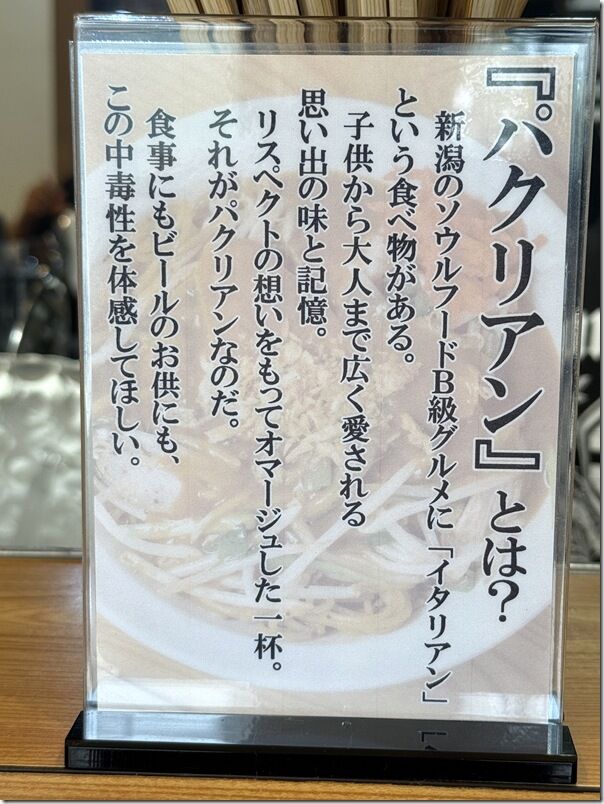 『パクリアン』とは?
新潟のソウルフードB級グルメに「イタリアン」
という食べ物がある。
子供から大人まで広く愛される
思い出の味と記憶。
リスペクトの想いをもってオマージュした一杯。
それがパクリアンなのだ。
食事にもビールのお供にも、
この中毒性を体感してほしい。